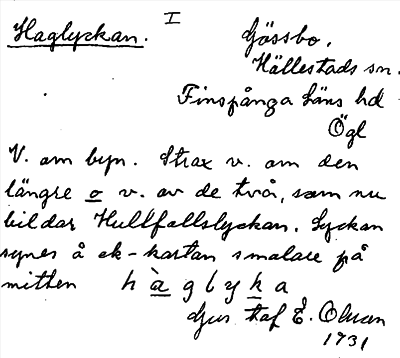 Haglyckan. I Gössbo,
Hällestads sn.
Finspånga läns hd
Ögl
V. om byn. Strax v. om den
längre o v. av de två, som nu
bildar Hultfallslyckan. Lyckan
synes å ek-kartan smalare på
mitten h à g l y k a
Gus taf E. Olsson
1931